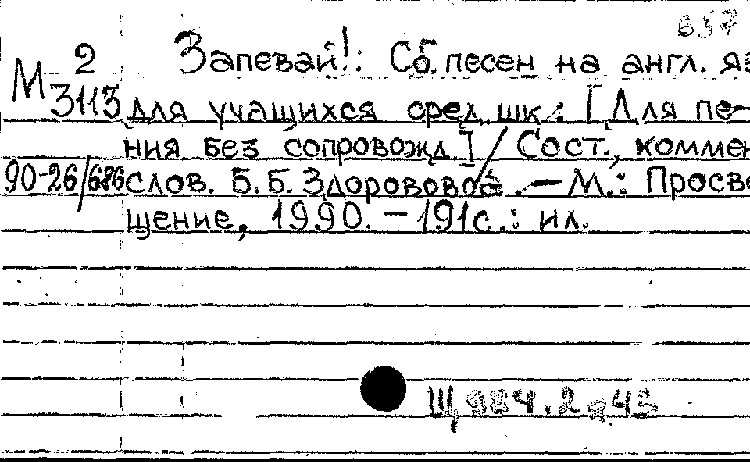 657
М 2 Запевай!: Сб. песен на англ. яз
3113 для учащихся сред. шк.: [Для пе-
ния без сопровожд.] / Сост., коммен
90-26/686 слов. Б.Б. Здоровово. — М.: Просве
щение, 1990. — 191с.: ил.
Щ 984.2я43